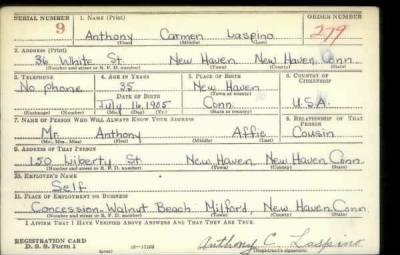 SERIAL NUMBER 1. NAME (Print) ORDER NUMBER
9 Anthony Carmen Laspino 279
(First) (Middle) (Last)
2. ADDRESS (Print)
36 White St. New Haven New Haven Conn.
(Number and street or R. F. D. number) (Town) (County) (State)
3. TELEPHONE 4. AGE IN YEARS 5. PLACE OF BIRTH 6. COUNTRY OF CITIZENSHIP
No phone 35 New Haven
DATE OF BIRTH (Town or county)
July 16, 1905 Conn. U.S.A.
(Exchange) (Number) (Mo.) (Day) (Yr.) (State or country)
7. NAME OF PERSON WHO WILL ALWAYS KNOW YOUR ADDRESS 8. RELATIONSHIP OF THAT PERSON
Mr. Anthony Affie Cousin
(Mr., Mrs., Miss) (First) (Middle) (Last)
9. ADDRESS OF THAT PERSON
150 Liberty St. New Haven, New Haven Conn.
(Number and street or R. F. D. number) (Town) (County) (State)
10. EMPLOYER'S NAME
Self
11. PLACE OF EMPLOYMENT OR BUSINESS
Concession-Walnut Beach Milford, New Haven Conn.
(Number and street or R. F. D. number) (Town) (County) (State)
I AFFIRM THAT I HAVE VERIFIED ABOVE ANSWERS AND THAT THEY ARE TRUE.
REGISTRATION CARD
D. S. S. Form 1 Anthony C. Laspino
(Registrant's signature)